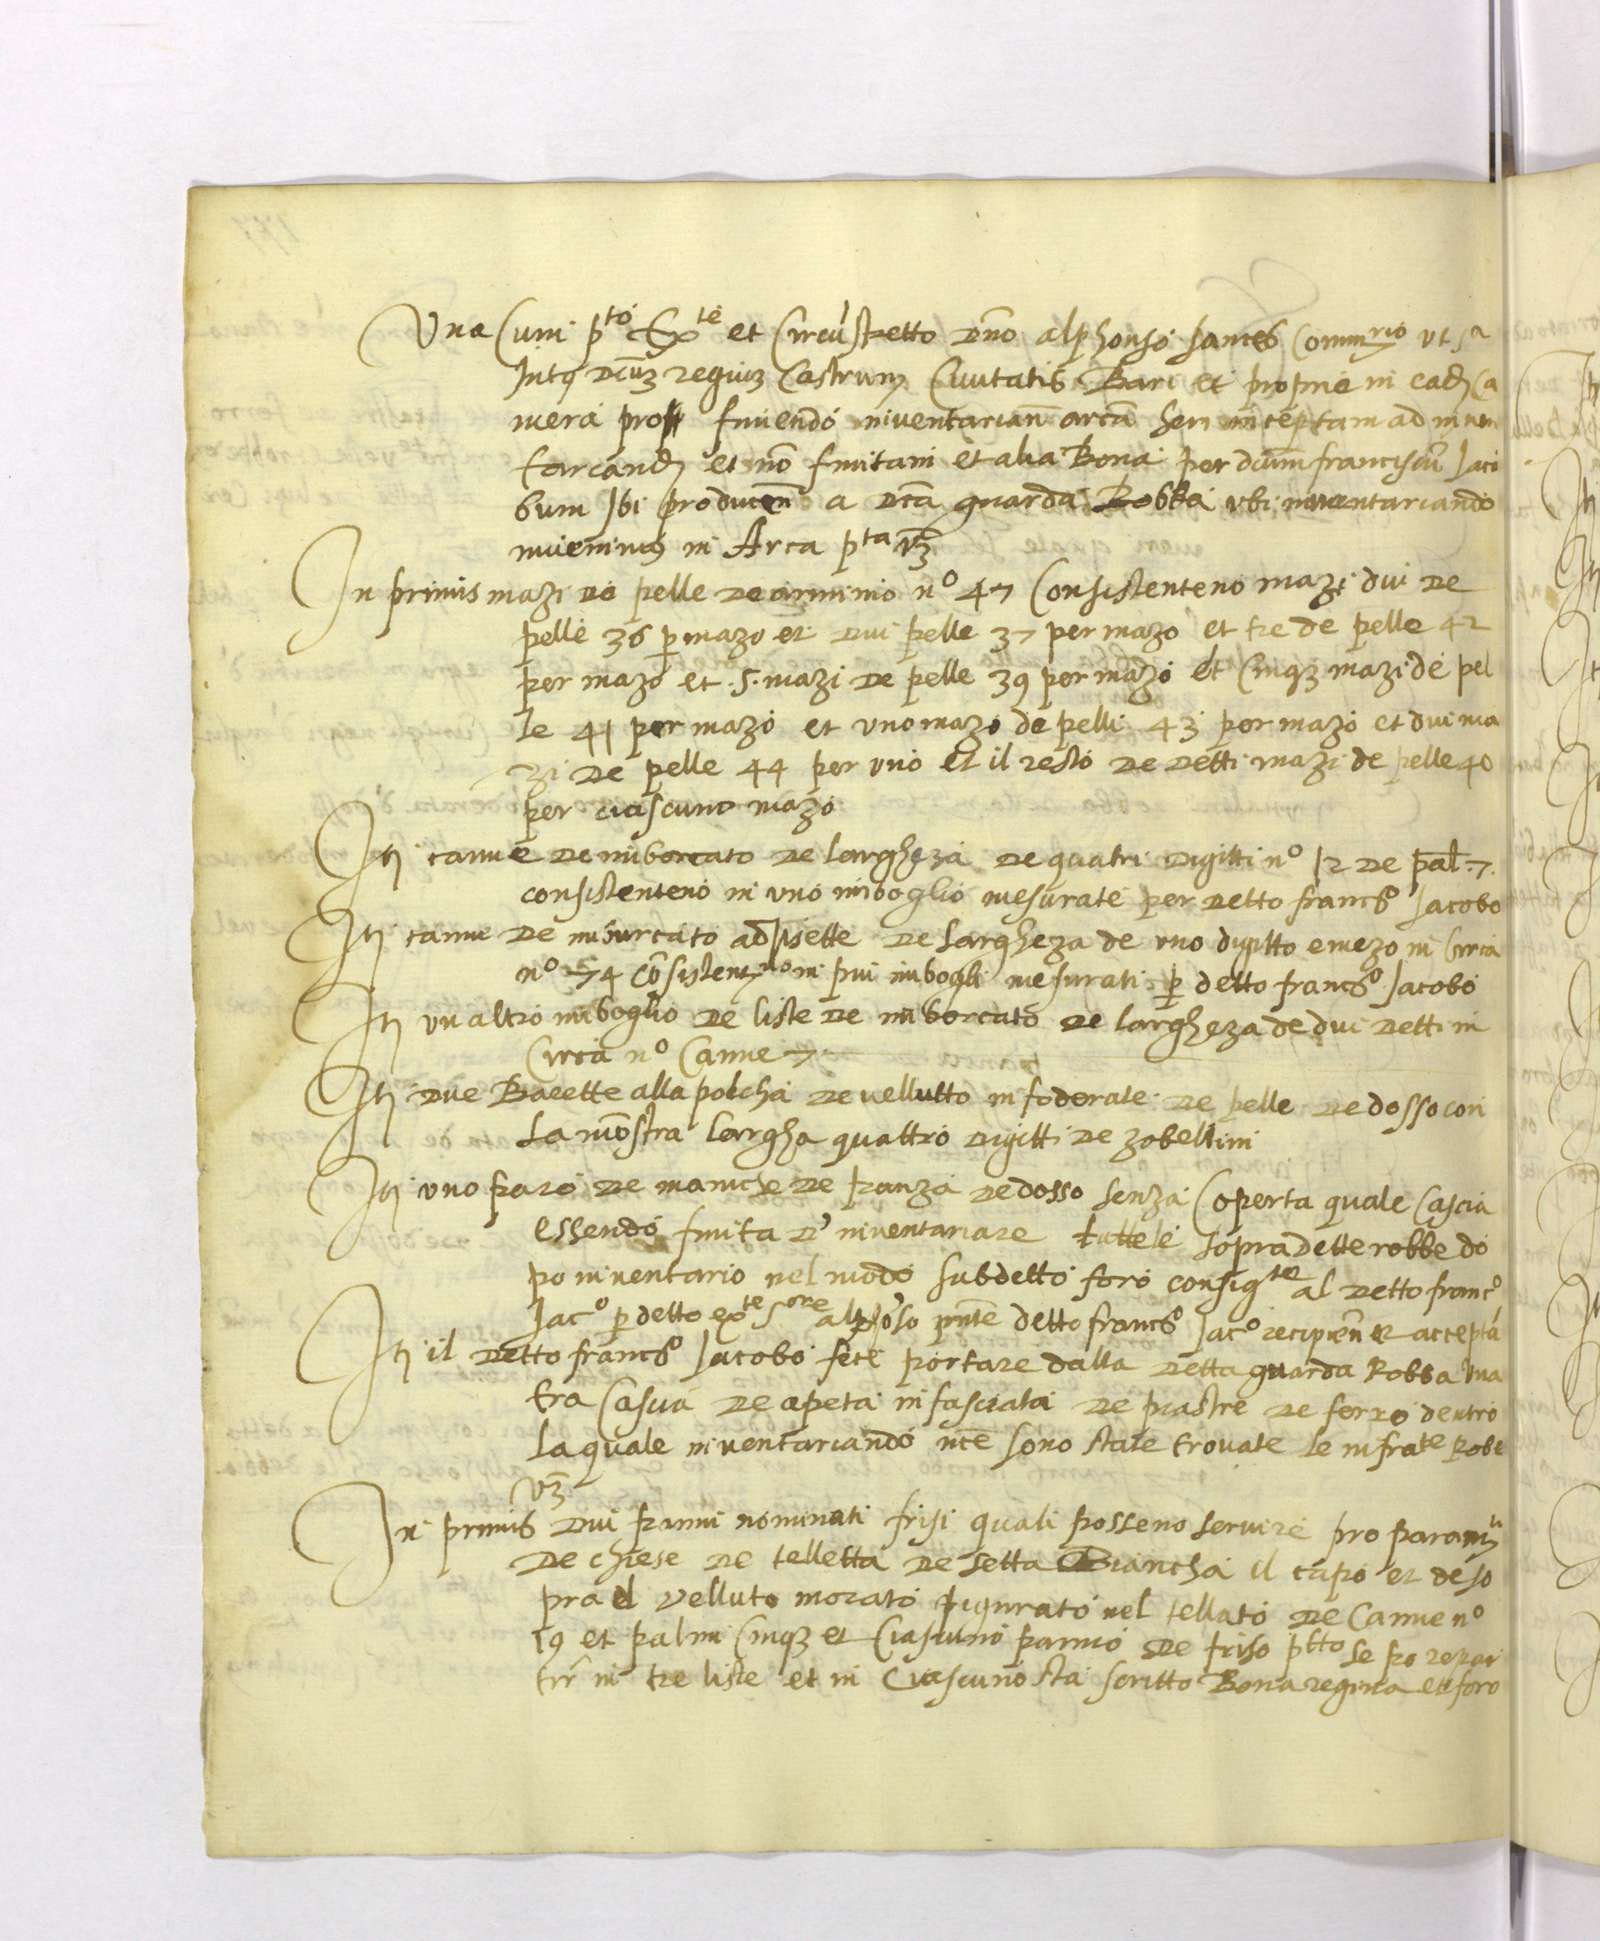 Una Cum p^to Ex^te et Circu͂stretto Dn͂o alphonso Sances Comm^rio ut s^a
Intq dcuʒ regiuʒ Castrum Civitatis Bari et proprie in eadʒ Ca
mera pro finiendo inventariam͂ arca͂ heri inceptam ad inven
tariandʒ et no͂ finitam et alia Bona per dcum franciscu͂ Jaco
bum Ibi producen͂ a Dcta͂ guarda Robba ubi inventariando
invenimus in Arca p^ta vʒ͂
In primis mazi de pelle de arminio n^o 47 Consistenteno mazi dui de
pelle 36 p mazo et dui pelle 37 per mazo et tre de pelle 42
per mazo et .5. mazi de pelle 39 per mazo et Cinqʒ mazi de pel
le 41 per mazo et uno mazo de pelli 43 per mazo et dui ma
zi de pelle 44 per uno et il resto de detti mazi de pelle 40
per ciascuno mazo
Itʒ canne de imborcato de largheza de quatri digitti n^o 12 de pal͂ .7.
consistenteno in uno imboglio mesurate per detto franc^o Jacobo
Itʒ canne de imburcato ad sette de largheza de uno digitto e mezo in Circa
n^o 74 co͂sistent^no in piu imbogli mesurati p detto franc^o Jacobo
Itʒ un altro imboglio de liste de imborcato de largheza de dui detti in
Circa n^o Canne 7
Itʒ due Bacette alla polcha de vellutto infoderate de pelle de dosso con
La mo͂stra largha quattro digitti de zobellini
Itʒ uno paro de maniche de panza de dosso senza Coperta quale Cascia
essendo finita d' inventariare tutte le sopradette robbe do
po inventario nel modo subdetto foro consig^te al detto franc^o
Jac^o p detto ex^te S^ore alpho͂so pn͂te detto franc^o Jac^o recipien͂ et accepta͂
Itʒ il detto franc^o Jacobo fece portare dalla detta guarda Robba una
tra Cascia de apeta infasciata de piastre de ferro dentro
la quale inventariando nce sono state trovate le infra^te Robe
vʒ͂
In primis dui panni nominati frisi quali posseno servire pro param^ti
de chiese de telletta de setta Biancha il capo et de so
pra el velluto morato figurato nel tellato de Canne n^o
19 et palmi Cinqʒ et Ciascuno panno de friso p^tto se po repar
tir͂ in tre liste et in Ciascuno sta scritto Bona regina et foro